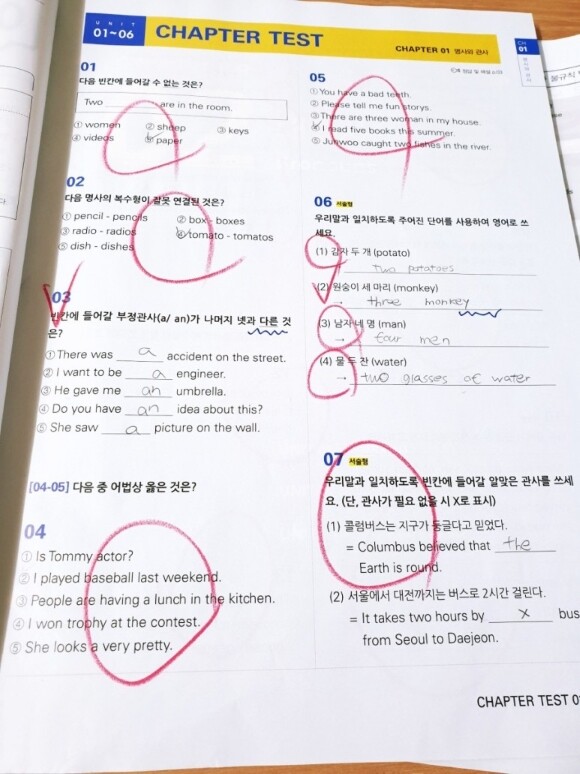 UNIT
01~06
CHAPTER TEST
CHAPTER 01 명사와 관사
CH
01
01
다음 빈칸에 들어갈 수 없는 것은?
Two ________ are in the room.
① women ② sheep ③ keys
④ videos ⑤ paper
02
다음 명사의 복수형이 잘못 연결된 것은?
① pencil - pencils ② box - boxes
③ radio - radios ④ tomato - tomatos
⑤ dish - dishes
03
빈칸에 들어갈 부정관사(a/ an)가 나머지 넷과 다른 것
은?
① There was a accident on the street.
② I want to be a engineer.
③ He gave me an umbrella.
④ Do you have an idea about this?
⑤ She saw a picture on the wall.
[04-05] 다음 중 어법상 옳은 것은?
04
① Is Tommy actor?
② I played baseball last weekend.
③ People are having a lunch in the kitchen.
④ I won trophy at the contest.
⑤ She looks a very pretty.
05
① You have a bad teeth.
② Please tell me fun storys.
③ There are three woman in my house.
④ I read five books this summer.
⑤ Junwoo caught two fishes in the river.
06 서술형
우리말과 일치하도록 주어진 단어를 사용하여 영어로 쓰
세요.
(1) 감자 두 개 (potato)
→ two potatoes
(2) 원숭이 세 마리 (monkey)
→ three monkey
(3) 남자 네 명 (man)
→ four men
(4) 물 두 잔 (water)
→ two glasses of water
07 서술형
우리말과 일치하도록 빈칸에 들어갈 알맞은 관사를 쓰세
요. (단, 관사가 필요 없을 시 X로 표시)
(1) 콜럼버스는 지구가 둥글다고 믿었다.
= Columbus believed that the
Earth is round.
(2) 서울에서 대전까지는 버스로 2시간 걸린다.
= It takes two hours by x bus
from Seoul to Daejeon.
CHAPTER TEST 0